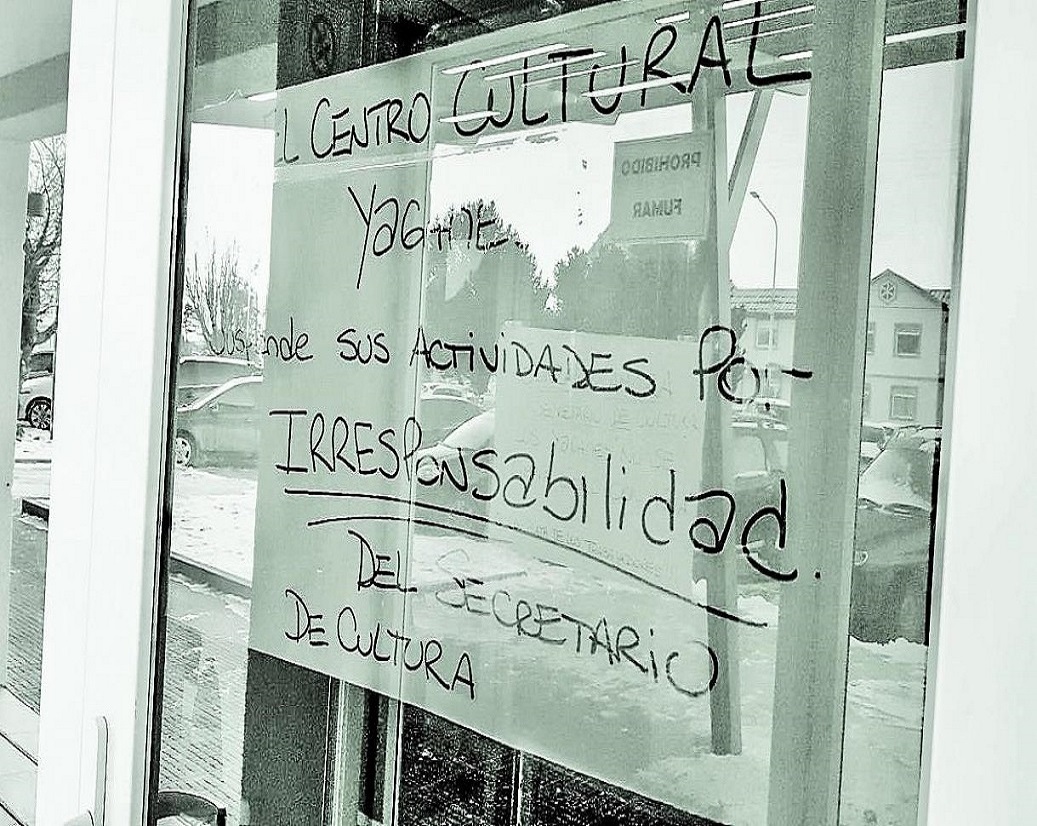 EL CENTRO CULTURAL
YAGHE.
Suspende sus ACTIVIDADES POR:-
IRRESPonsabilidad.
DEL SECRETARIO
DE CULTURA
PROHIBIDO
FUMAR